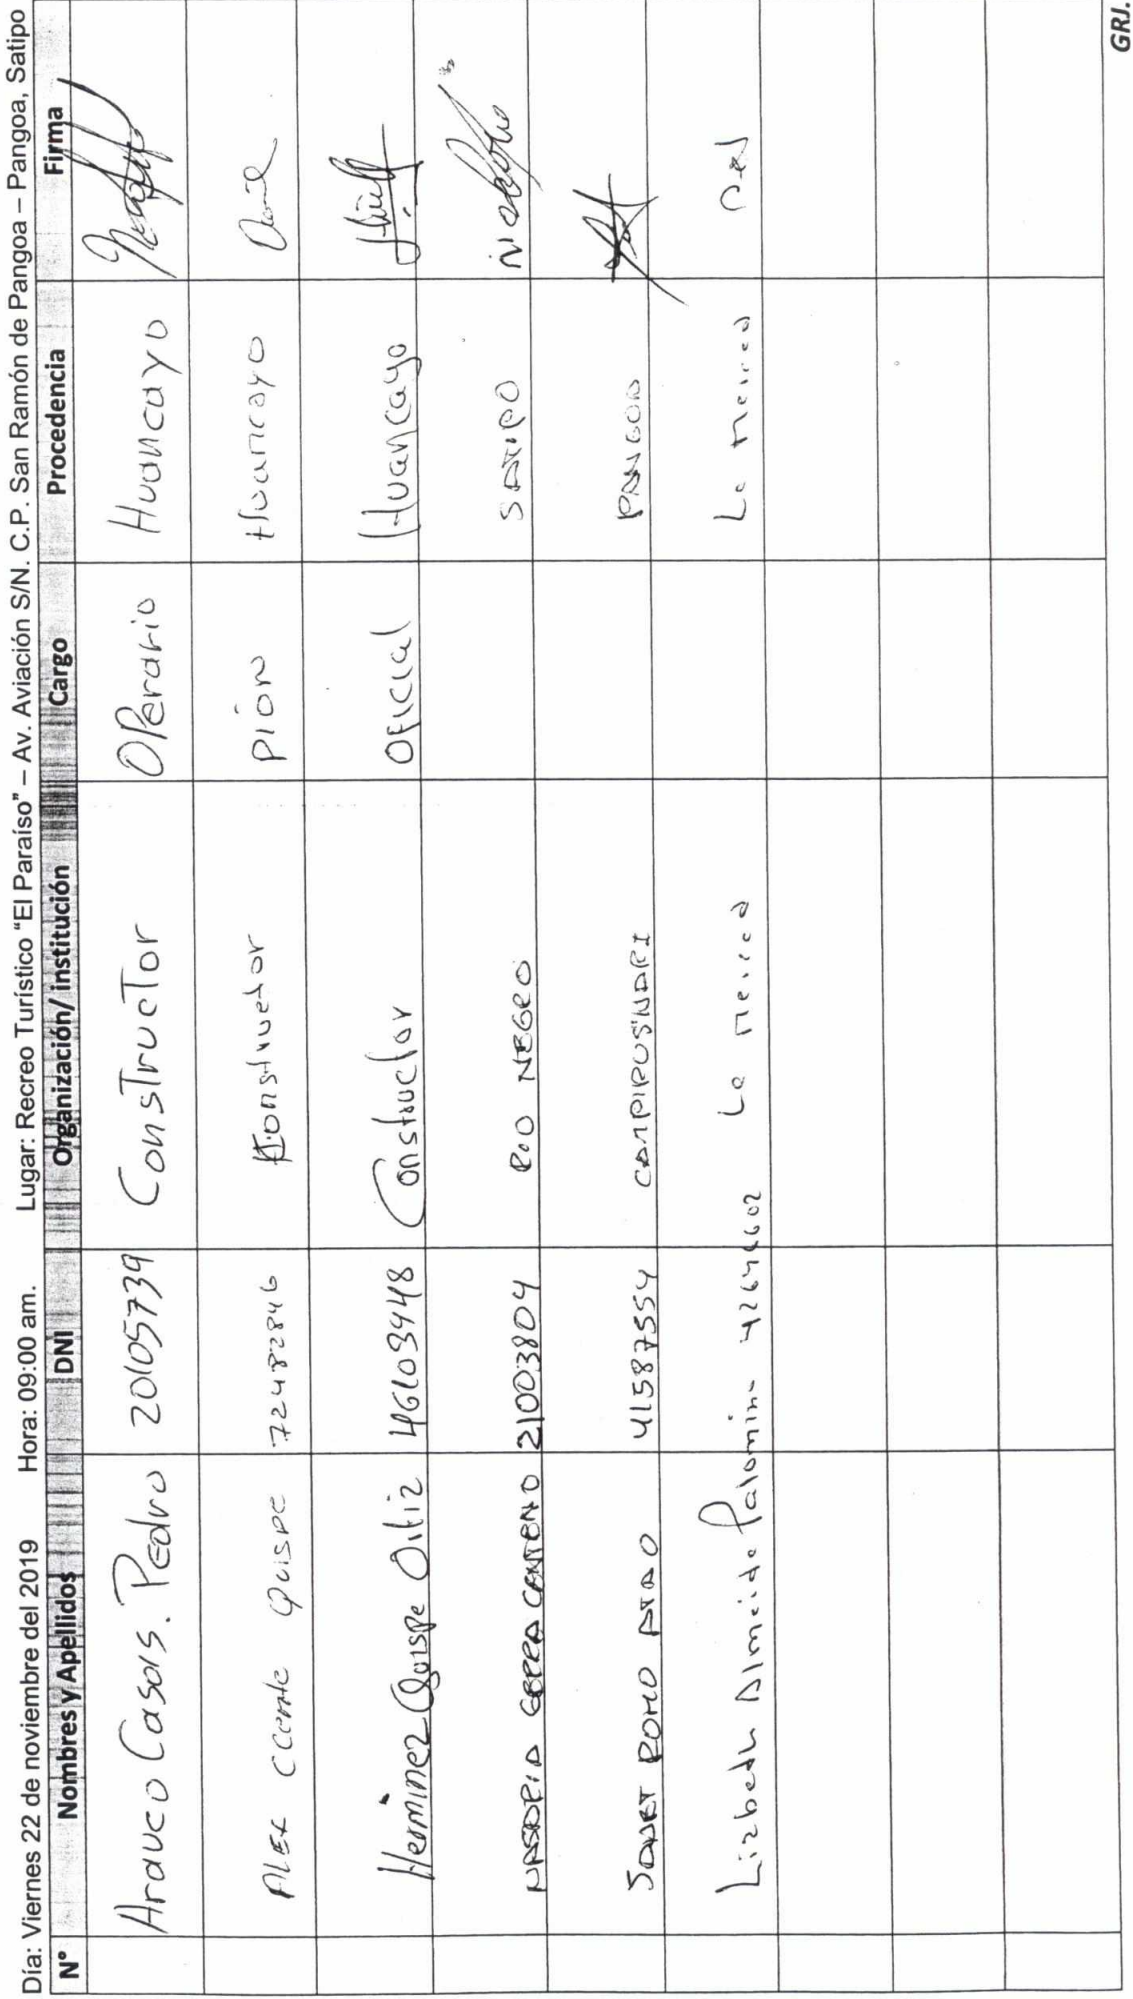 Día: Viernes 22 de noviembre del 2019 Hora: 09:00 am. Lugar: Recreo Turístico "El Paraíso" – Av. Aviación S/N. C.P. San Ramón de Pangoa – Pangoa, Satipo
N° Nombres y Apellidos DNI Organización/ institución Cargo Procedencia Firma
Arauco Casas. Pedro 20105739 Constructor Operario Huancayo
Alex Ccente Quispe 72482846 Constructor pion Huancayo
Herminez Quispe Ortiz 46103448 Constructor Oficial Huancayo
CENTENO 21003804 RIO NEGRO SATIPO
ROMO 41587554 PANGOA
Lizbeth Almeida Palomino 42646602 La Merced La Merced
GRJ.